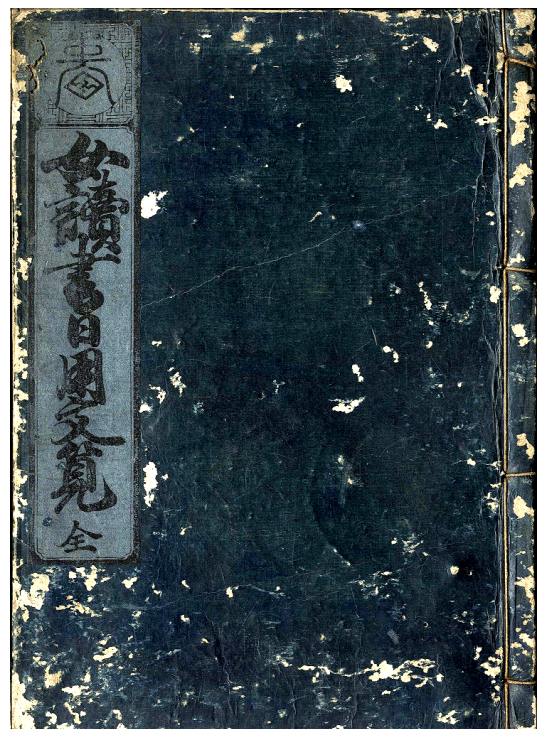 女讀書日用文覧
全